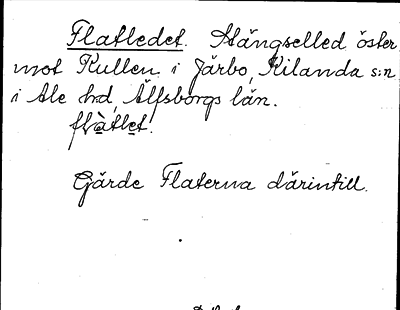 Flatledet. Stängselled öster
mot Kullen i Järbo, Kilanda s:n
i Ale hd, Älfsborgs län.
flàtlet.
Gärde Flaterna därintill.